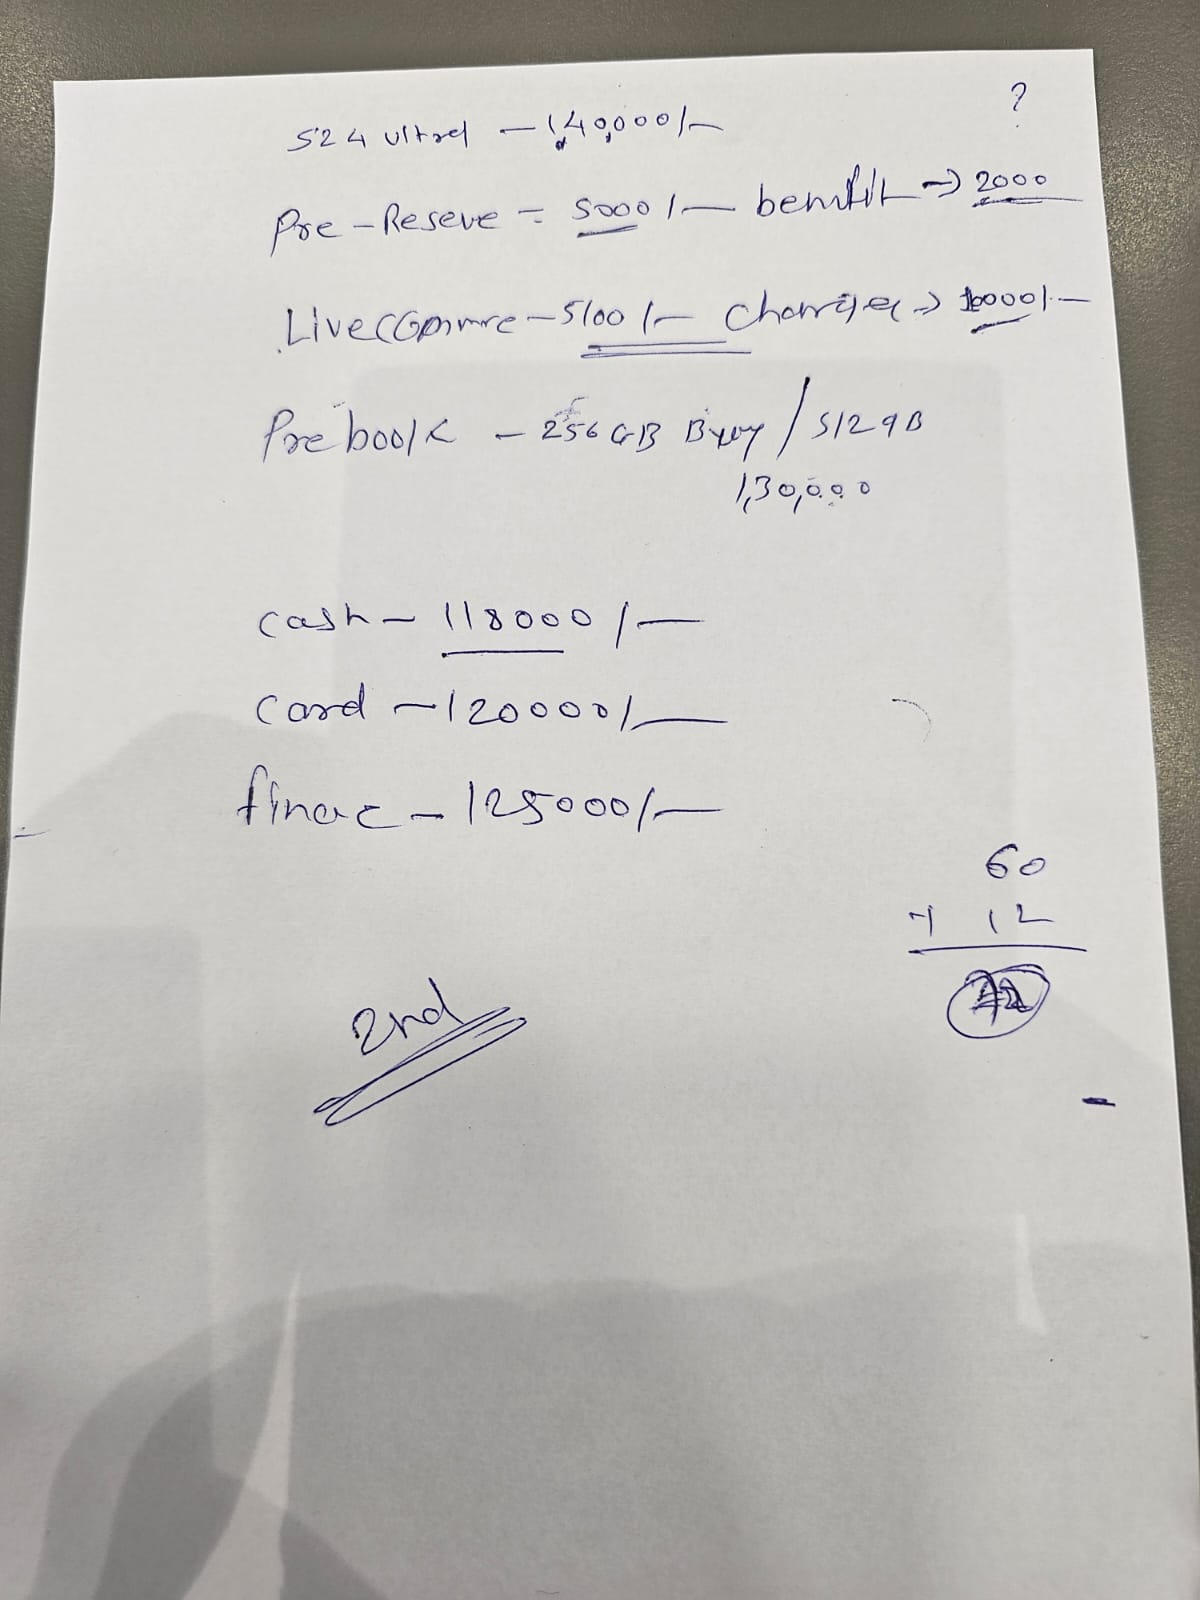 ?
S24 Ultra — 1,40,000/—
Pre-Reseve = 5000/— benifit → 2000
Live Commre — 5100/— charger → 10000/—
Prebook — 256 GB Buy / 512 GB
1,30,000
cash — 118000/—
Card — 120000/—
finac — 125000/—
60
+ 12
72
2nd